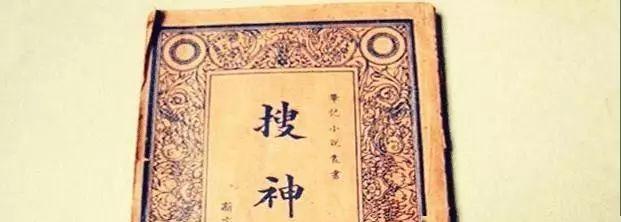 筆記小說叢書
搜神